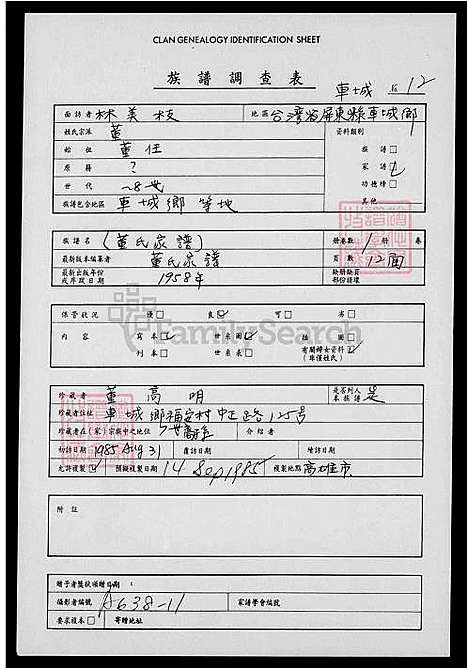 CLAN GENEALOGY IDENTIFICATION SHEET
族譜調查表
車城 12
面訪者 林美枝 地區 台灣省屏東縣車城鄉
姓氏宗派 董 資料類別
始祖 董任 族譜
原籍 ? 家譜 ✓
世代 ~8世 功德榜
族譜包含地區 車城鄉 等地 其他
族譜名 (董氏家譜) 冊卷數 1 冊 卷
最新版本編纂者 董氏家譜 頁數 12面
最新出版年份或序跋日期 1958年 缺冊缺頁部份損壞
保管狀況 優 良 ✓ 可 劣
內容 寫本 ✓ 世系圖 ✓ 插圖
刊本 世系表 有關婦女資料 ✓
(珠僅姓氏)
珍藏者 董高明 是否列入本族譜 是
珍藏者住址 車城鄉福安村中正路125号
珍藏者在(家)宗族中之地位 介紹者
初訪日期 1985 Aug 31 復訪日期 續訪日期
允許複製 ✓ 預擬複製日期 14 Sep 1985 複製地點 高雄市
附註
贈予者獎狀頒贈日期:
攝影者編號 A638-11 家譜學會編號
要求複本 寄贈地址
FamilySearch